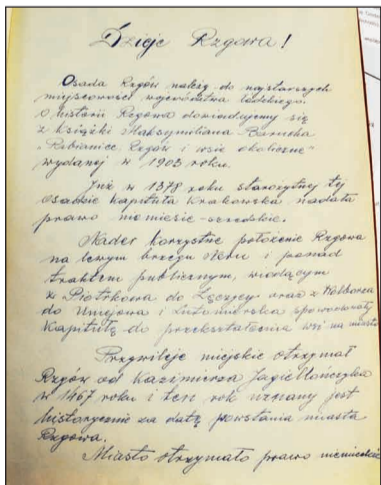 Dzieje Rzgowa!
Osada Rzgów należy do najstarszych
miejscowości województwa łódzkiego.
O historii Rzgowa dowiadujemy się
z książki Maksymiliana Barucha
„Pabianice Rzgów i wsie okoliczne"
wydanej w 1903 roku.
Już w 1378 roku starożytnej tej
osadzie Kapituła Krakowska nadała
prawo niemiesie-średzkie.
Nader korzystne położenie Rzgowa
na lewym brzegu Neru i ponad
traktem publicznym, wiodącym
z Piotrkowa do Łęczycy oraz z Wolborza
do Uniejowa i Lutomierska spowodowały
Kapitułę do przekształcenia wsi na miasto
Przywileje miejskie otrzymał
Rzgów od Kazimierza Jagiellończyka
w 1467 roku i ten rok uznany jest
historycznie za datę powstania miasta
Rzgowa.
Miasto otrzymało prawo niemieckie